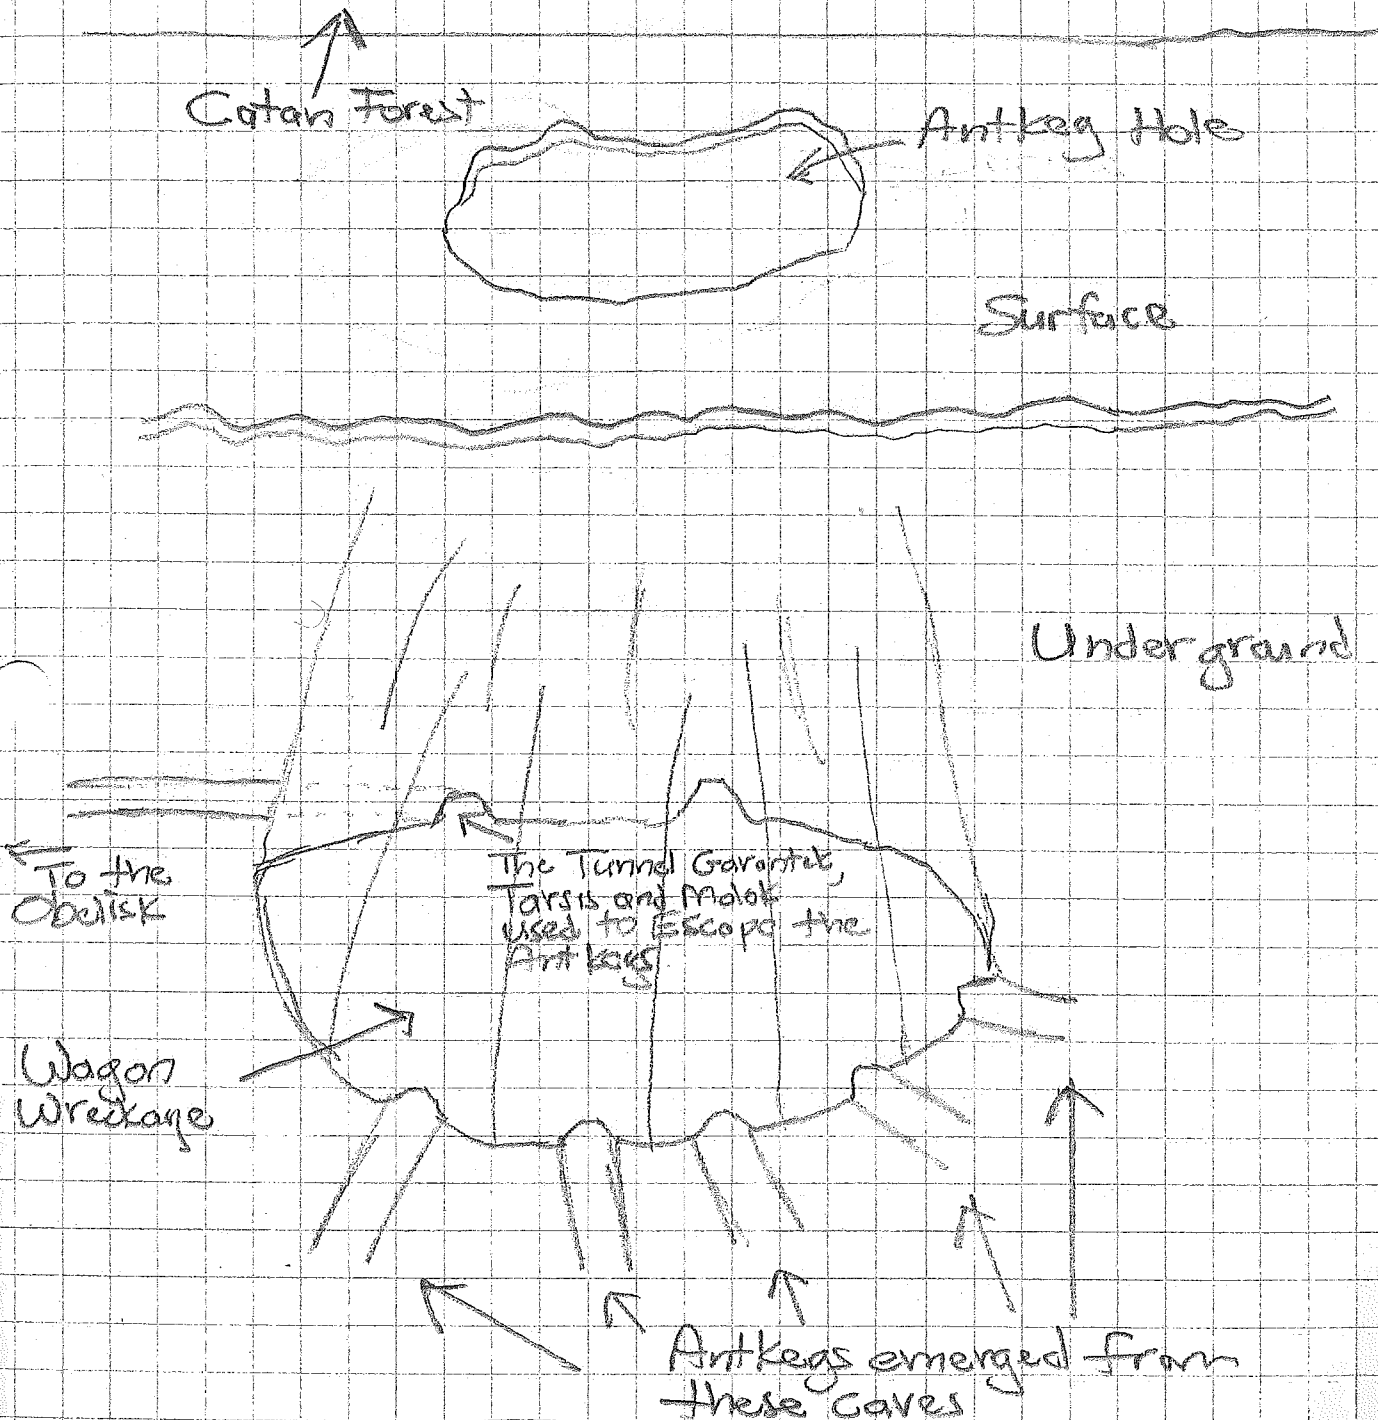 Catan Forest
Antkeg Hole
Surface
Underground
To the
Obelisk
The Tunnel Garontek,
Tarsis and Molok
used to Escape the
Antkegs
Wagon
Wreckage
Antkegs emerged from
these caves